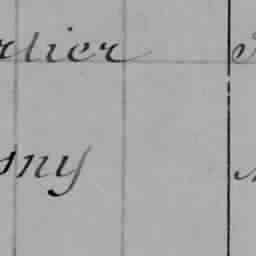 rlier
sny